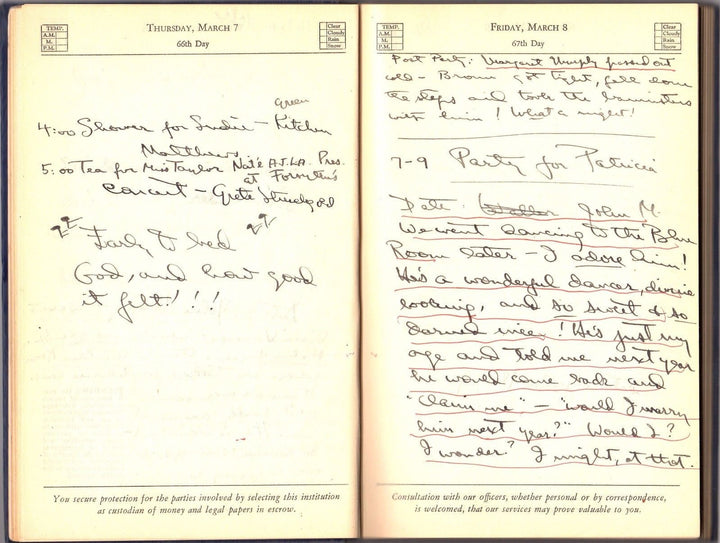 THURSDAY, MARCH 7
66th Day
TEMP.
A.M.
M.
P.M.
Clear
Cloudy
Rain
Snow
green
4:00 Shower for Sudie - Kitchen
Matthews
5:00 Tea for Miss Taylor Nat'l A.J.L.A. Pres.
at
Concert - Grete
Early to bed
God, and how good
it felt!!!
You secure protection for the parties involved by selecting this institution
as custodian of money and legal papers in escrow.
FRIDAY, MARCH 8
67th Day
TEMP.
A.M.
M.
P.M.
Clear
Cloudy
Rain
Snow
Post Party: Margaret passed out
cold - Brown got tight, fell down
the steps and took the bannisters
with him! What a night!
7-9 Party for Patricia
Date: John M.
We went dancing to the Blue
Room later - I adore him!
He's a wonderful dancer, divine
looking, and so sweet & so
darned nice! He's just my
age and told me next year
he would come back and
"Claim me" - "would I marry
him next year?" Would I?
I wonder? I might, at that.
Consultation with our officers, whether personal or by correspondence,
is welcomed, that our services may prove valuable to you.